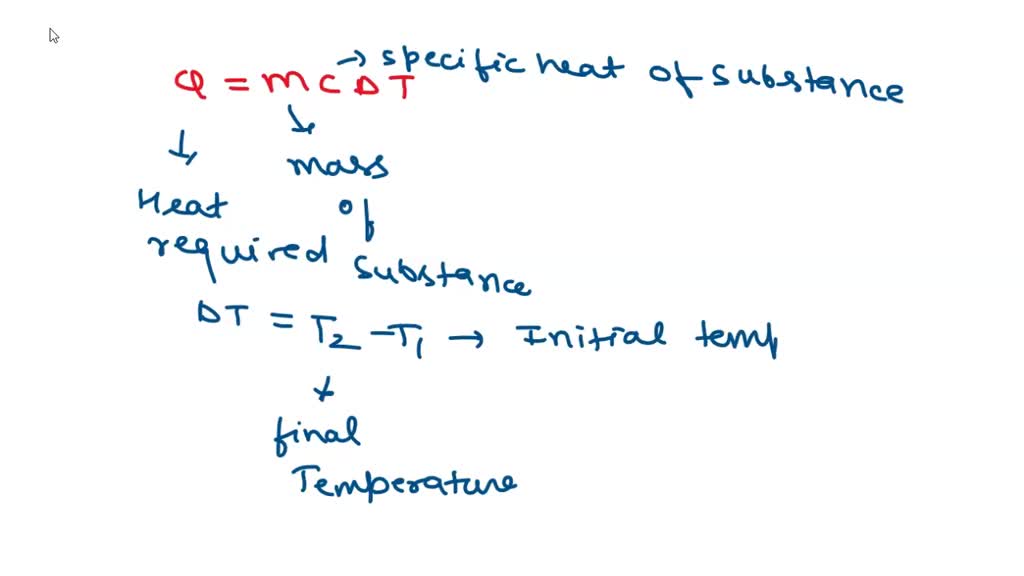 Q = m C Δ T → specific heat of substance
Heat required
mass
of
substance
ΔT = T₂ - T₁ → Initial temp
final
Temperature